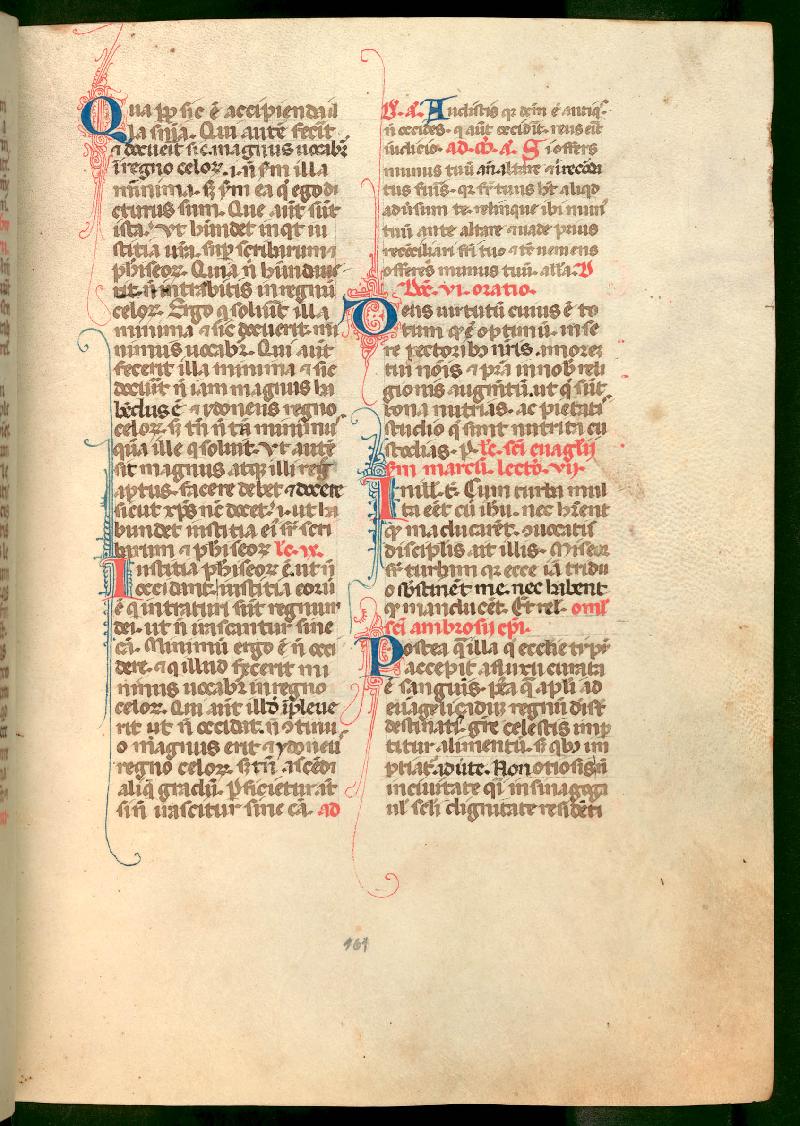 Qua pp sic ē accipienda il
la snīa. Qui autē fecit
⁊ docueit sic. magnus uocabr̄
ī regno celoꝝ. i. ñ sm illa
minima. sꝫ sm ea q̄ ego di
cturus sum. Que aūt sūt
ista. Vt hūndet inqt iu
stitia ur̄a. sup̄ scribarum ⁊
phīseoꝝ. Quia ñ hūndaue
rit. ñ intrabitis in regnū
celoꝝ. Ergo q̄ soluūt illa
minima ⁊ sic docuerit. mi
nimus uocabr̄. Qui aūt
fecerit illa minima ⁊ sic
docūit ñ iam magnus ha
bēdus ē ⁊ ydoneus regno
celoꝝ. sꝫ tn̄ ñ tā minimus
quā ille q̄ soluit. Vt autē
sit magnus atqꝫ illi reḡ
aptus. facere debet ⁊ docere
sicut xp̄s nc̄ docet. i. ut ha
bundet iustitia ei sr̄ scri
barum ⁊ phīseoꝝ lc̄. ix.
Iustitia phīseoꝝ ē. ut ñ
occidant. iustitia eorū
ē q̄ intraturi sūt regnum
dei. ut ñ irascantur sine
cā. Minimū ergo ē ñ occi
dere. ⁊ q̄ illud fecerit mi
nimus uocabr̄ in regno
celoꝝ. Qui aūt illd̄ īpleue
rit ut ñ occidat. ñ ꝯtinu
o magnus erit ⁊ ydoneus
regno celoꝝ. sꝫ tn̄ ascēdi
aliq̄ gradū. Pficietur aūt
si ñ irascitur sine cā. ad
b. a. Audistis qꝛ dc̄m ē antiq̄s.
ñ occides. q̄ aūt occidit. reus eīt
iudicio. ad m̄. a. Si offers
munus tuū an̄ altare ⁊ ī recōda
tus fuīs. qꝛ fr̄ tuus ht̄ aliqd
adūsum te. relinque ibi mun̄
tuū ante altare ⁊ uade prius
recōciliari fr̄i tuo ⁊ tc̄ ueniens
offeres munus tuū. all'a.
D̄c̄. vi. oratio.
Deus uirtutū cuius ē to
tum qd̄ ē optimū. inse
re pectoribꝫ nr̄is. amorem
tui nōīs ⁊ pr̄a in nob̄ reli
gionis augm̄tū. ut q̄ sūt
bona nutrias. ac pietatis
studio q̄ sunt nutrita cu
stodias. P. lc̄. sc̄i euāglij
sm marcū. lecto. vij.
In ill'. t. Cum turba mul
ta eēt cū ihū. nec hr̄ent
qꝫ māducarēt. ꝯuocatis
disciplis ait illis. Miseor
sr̄ turbam qꝛ ecce iā tridu
o sustinēt me. nec habent
qꝫ manducēt. Et rel'. oml'
sc̄i ambrosij ep̄i.
Postea q̄ illa q̄ ecclie typū
accepit a fluxu curata
ē sanguīs. p̄ea q̄ apl'i ad
euāgelizādū regnū dei sūt
destinati. grē celestis imp̄
titur alimentū. sꝫ qbꝫ im
ptiat. adūte. Non otiosis ñ
in ciuitate qi in sinagoga
ul' sc̄li dignitate residēti
161